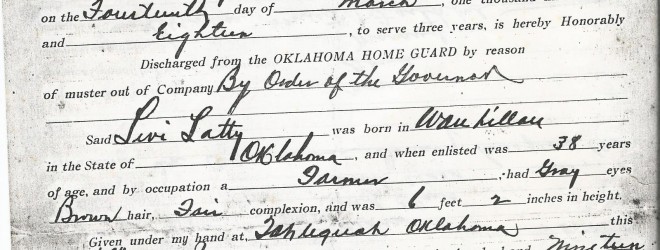 on the Fourteenth day of March, one thousand
and Eighteen, to serve three years, is hereby Honorably
Discharged from the OKLAHOMA HOME GUARD by reason
of muster out of Company By Order of the Governor
Said Levi Latty was born in Wauhillau
in the State of Oklahoma, and when enlisted was 38 years
of age, and by occupation a Farmer, had Gray eyes
Brown hair, Fair complexion, and was 6 feet 2 inches in height.
Given under my hand at, Tahlequah Oklahoma this
Nineteen